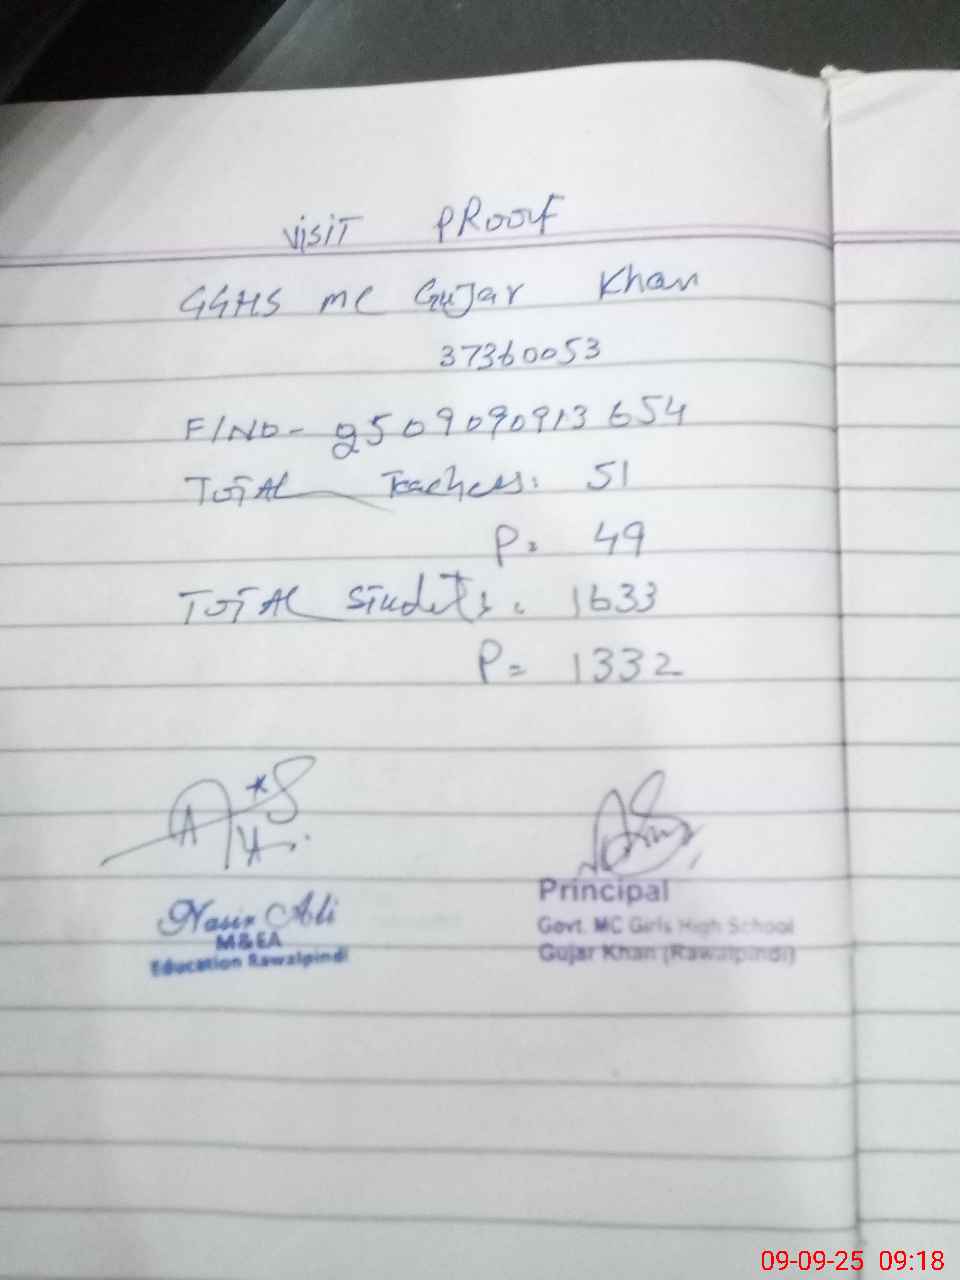 VISIT PROOF
GGHS MC Gujar Khan
37360053
F/NO- 2509090913654
TOTAL Teachers: 51
P= 49
TOTAL Students: 1633
P= 1332
Nasir Ali
M&EA
Education Rawalpindi
Principal
Govt. MC Girls High School
Gujar Khan (Rawalpindi)
09-09-25 09:18